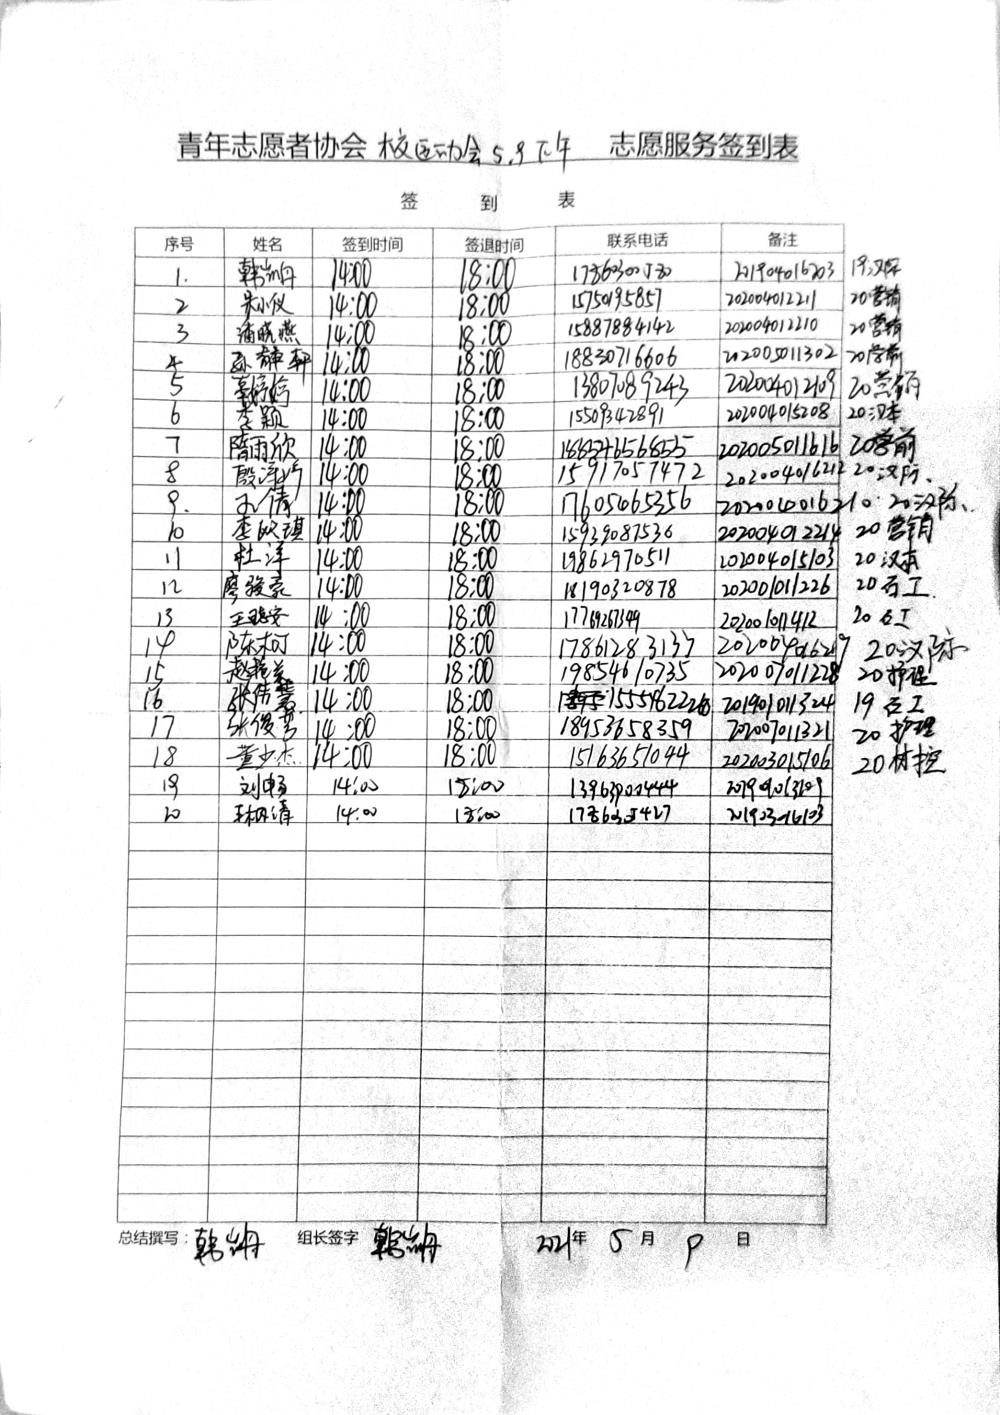 青年志愿者协会 校运动会5.9下午 志愿服务签到表
签 到 表
序号 姓名 签到时间 签退时间 联系电话 备注
1. 14:00 18:00 201904016203
2 朱小仪 14:00 18:00 15750195857 202004012211 20营销
3 潘晓燕 14:00 18:00 15887884142 202004012210 20营销
4 孙静轩 14:00 18:00 18830716606 202005011302 20学前
5 14:00 18:00 13807089243 202004012109 20营销
6 李颖 14:00 18:00 15509342891 202004015208 20汉本
7 隋雨欣 14:00 18:00 202005011616 20学前
8 14:00 18:00 15917057472 202004016212 20汉际.
9. 孔倩 14:00 18:00 17605465356 202004016210. 20汉际.
10 李欣琪 14:00 18:00 15939087536 202004012214 20营销
11 杜洋 14:00 18:00 19862970511 202004015103 20汉本
12 廖骏豪 14:00 18:00 18190320878 202001011226 20石工.
13 14:00 18:00 17769267149 202001011412 20石工
14 陈柯 14:00 18:00 17861283137 20汉际
15 14:00 18:00 19854610735 202007011228 20护理
16 张伟慧 14:00 18:00 201901011324 19石工
17 14:00 18:00 18953658359 202007011321 20护理
18 董少杰 14:00 18:00 15163651044 202003015106 20材控
19 刘畅 14:00 18:00
20 14:00 18:00
总结撰写: 组长签字 2021年 5月 9日